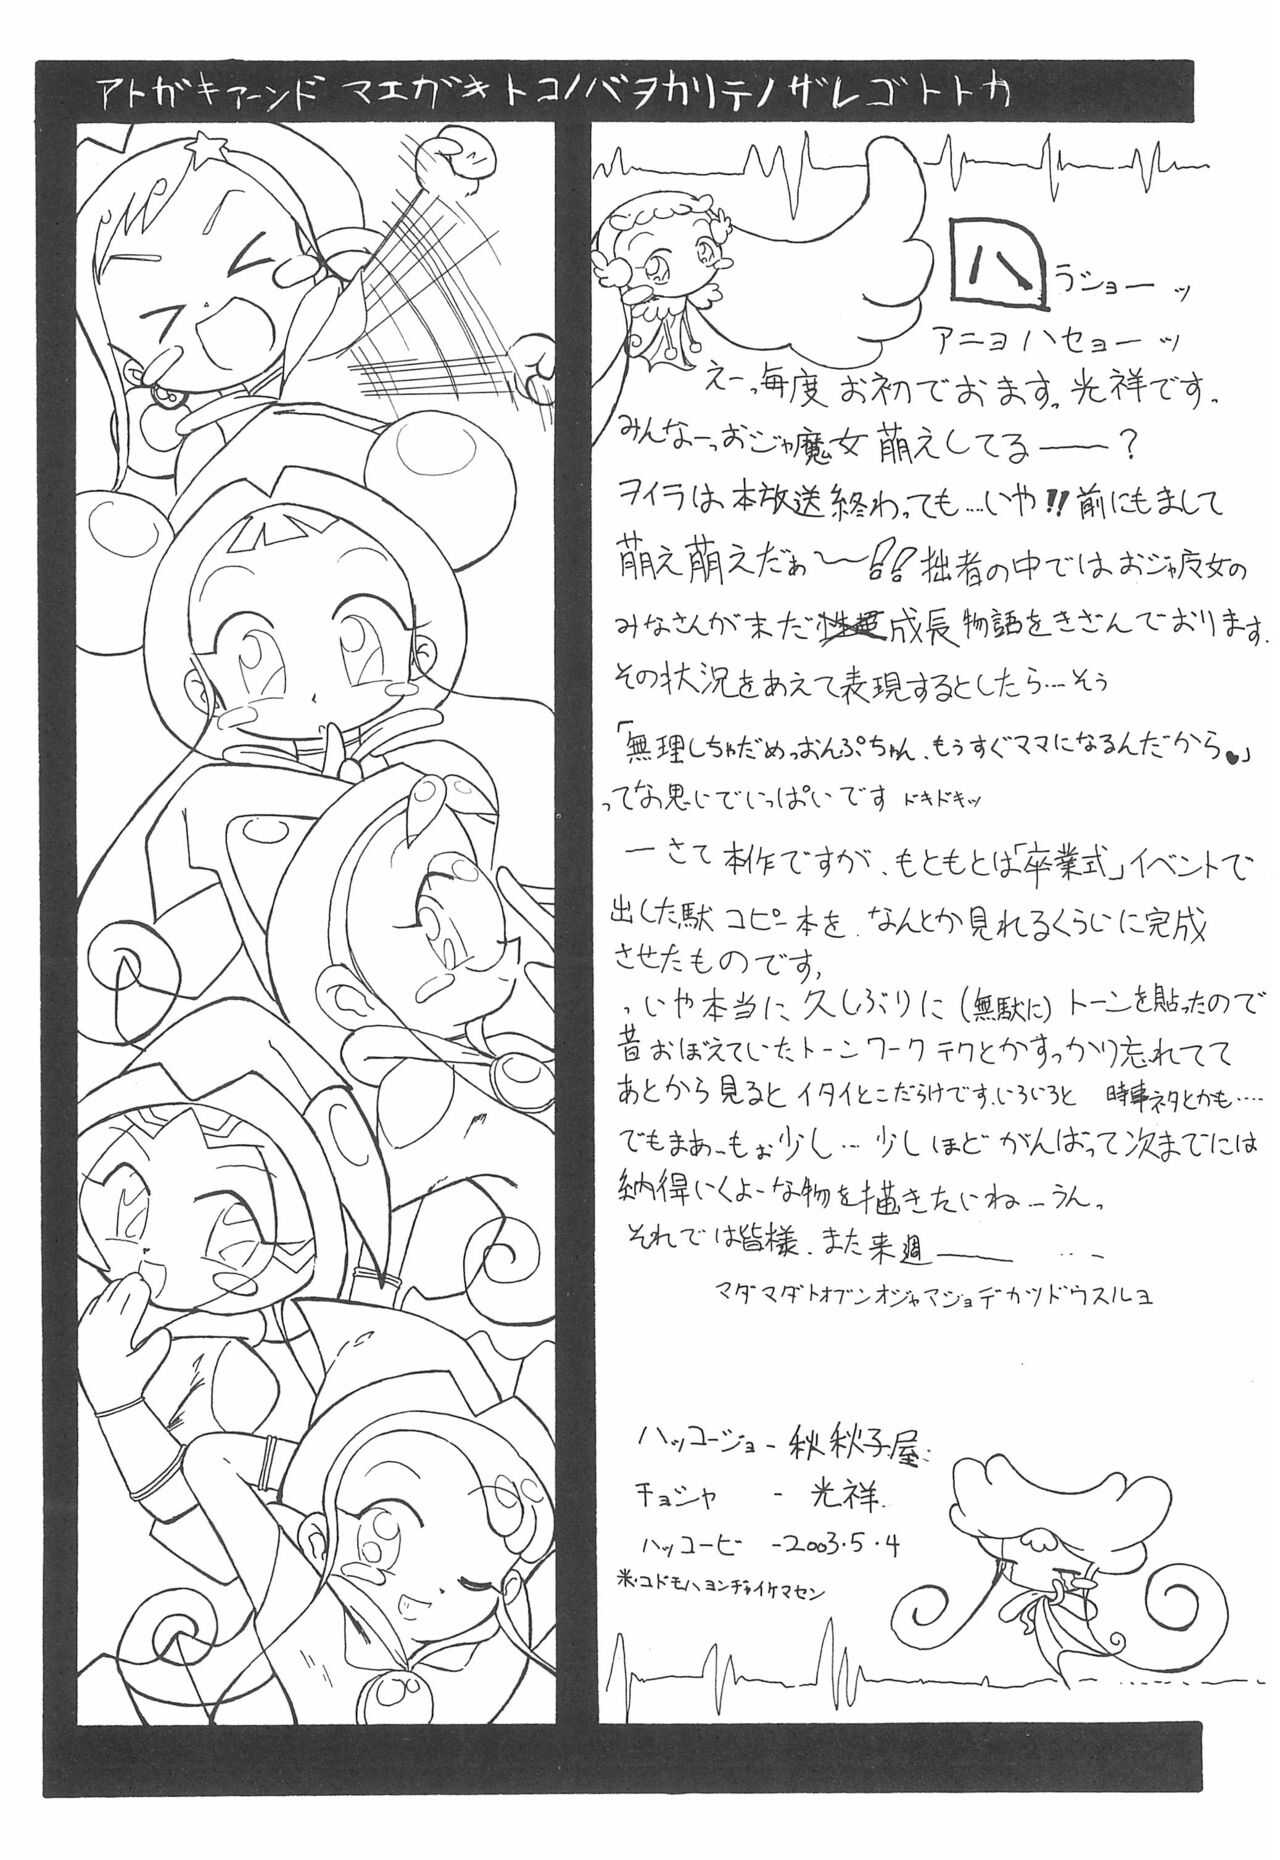 アトガキアーンド マエガキトコノバヲカリテノザレゴトトカ
ハラショーッ
アニョハセョーッ
えーっ毎度お初でおます。光祥です。
みんなーっおジャ魔女萌えしてるー―？
ヲイラは本放送終わっても…いや!!前にもまして
萌え萌えだぁ〜〜!!拙者の中ではおジャ魔女の
みなさんが未だ成長物語をきざんでおります。
その状況をあえて表現するとしたら…そう
「無理しちゃだめっおんぷちゃん、もうすぐママになるんだから♥」
ってな感じでいっぱいです ドキドキッ
―さて本作ですが、もともとは「卒業式」イベントで
出した駄コピー本を、なんとか見れるくらいに完成
させたものです、
、いや本当に久しぶりに(無駄に)トーンを貼ったので
昔おぼえていたトーンワークテクとかすっかり忘れてて
あとから見るとイタイとこだらけです、いろいろと 時事ネタとかも…‥
でもまあーもぉ少し…少しほどがんばって次までには
納得いくよーな物を描きたいねーうん。
それでは皆様、また来週――― …-
マダマダトオブンオジャマジョデカツドウスルヨ
ハッコージョ-秋秋子屋
チョシャ - 光祥
ハッコービ -2003・5・4
米・コドモハヨンヂャイケマセン